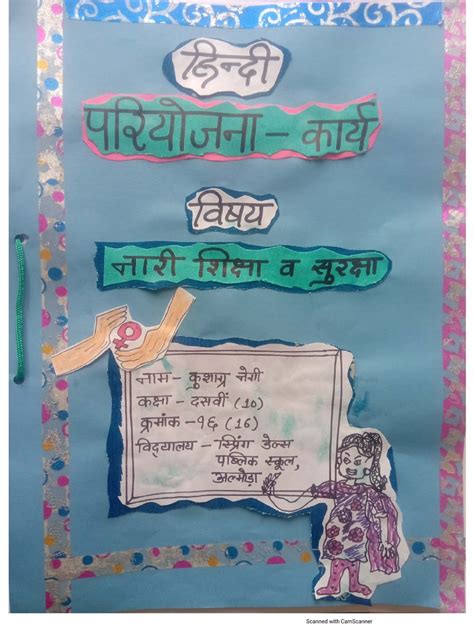 हिन्दी
परियोजना - कार्य
विषय
नारी शिक्षा व सुरक्षा
नाम - कुशाग्र नेगी
कक्षा - दसवीं (10)
क्रमांक - १६ (16)
विद्यालय - स्प्रिंग डेल्स
पब्लिक स्कूल,
अल्मोड़ा
Scanned with CamScanner